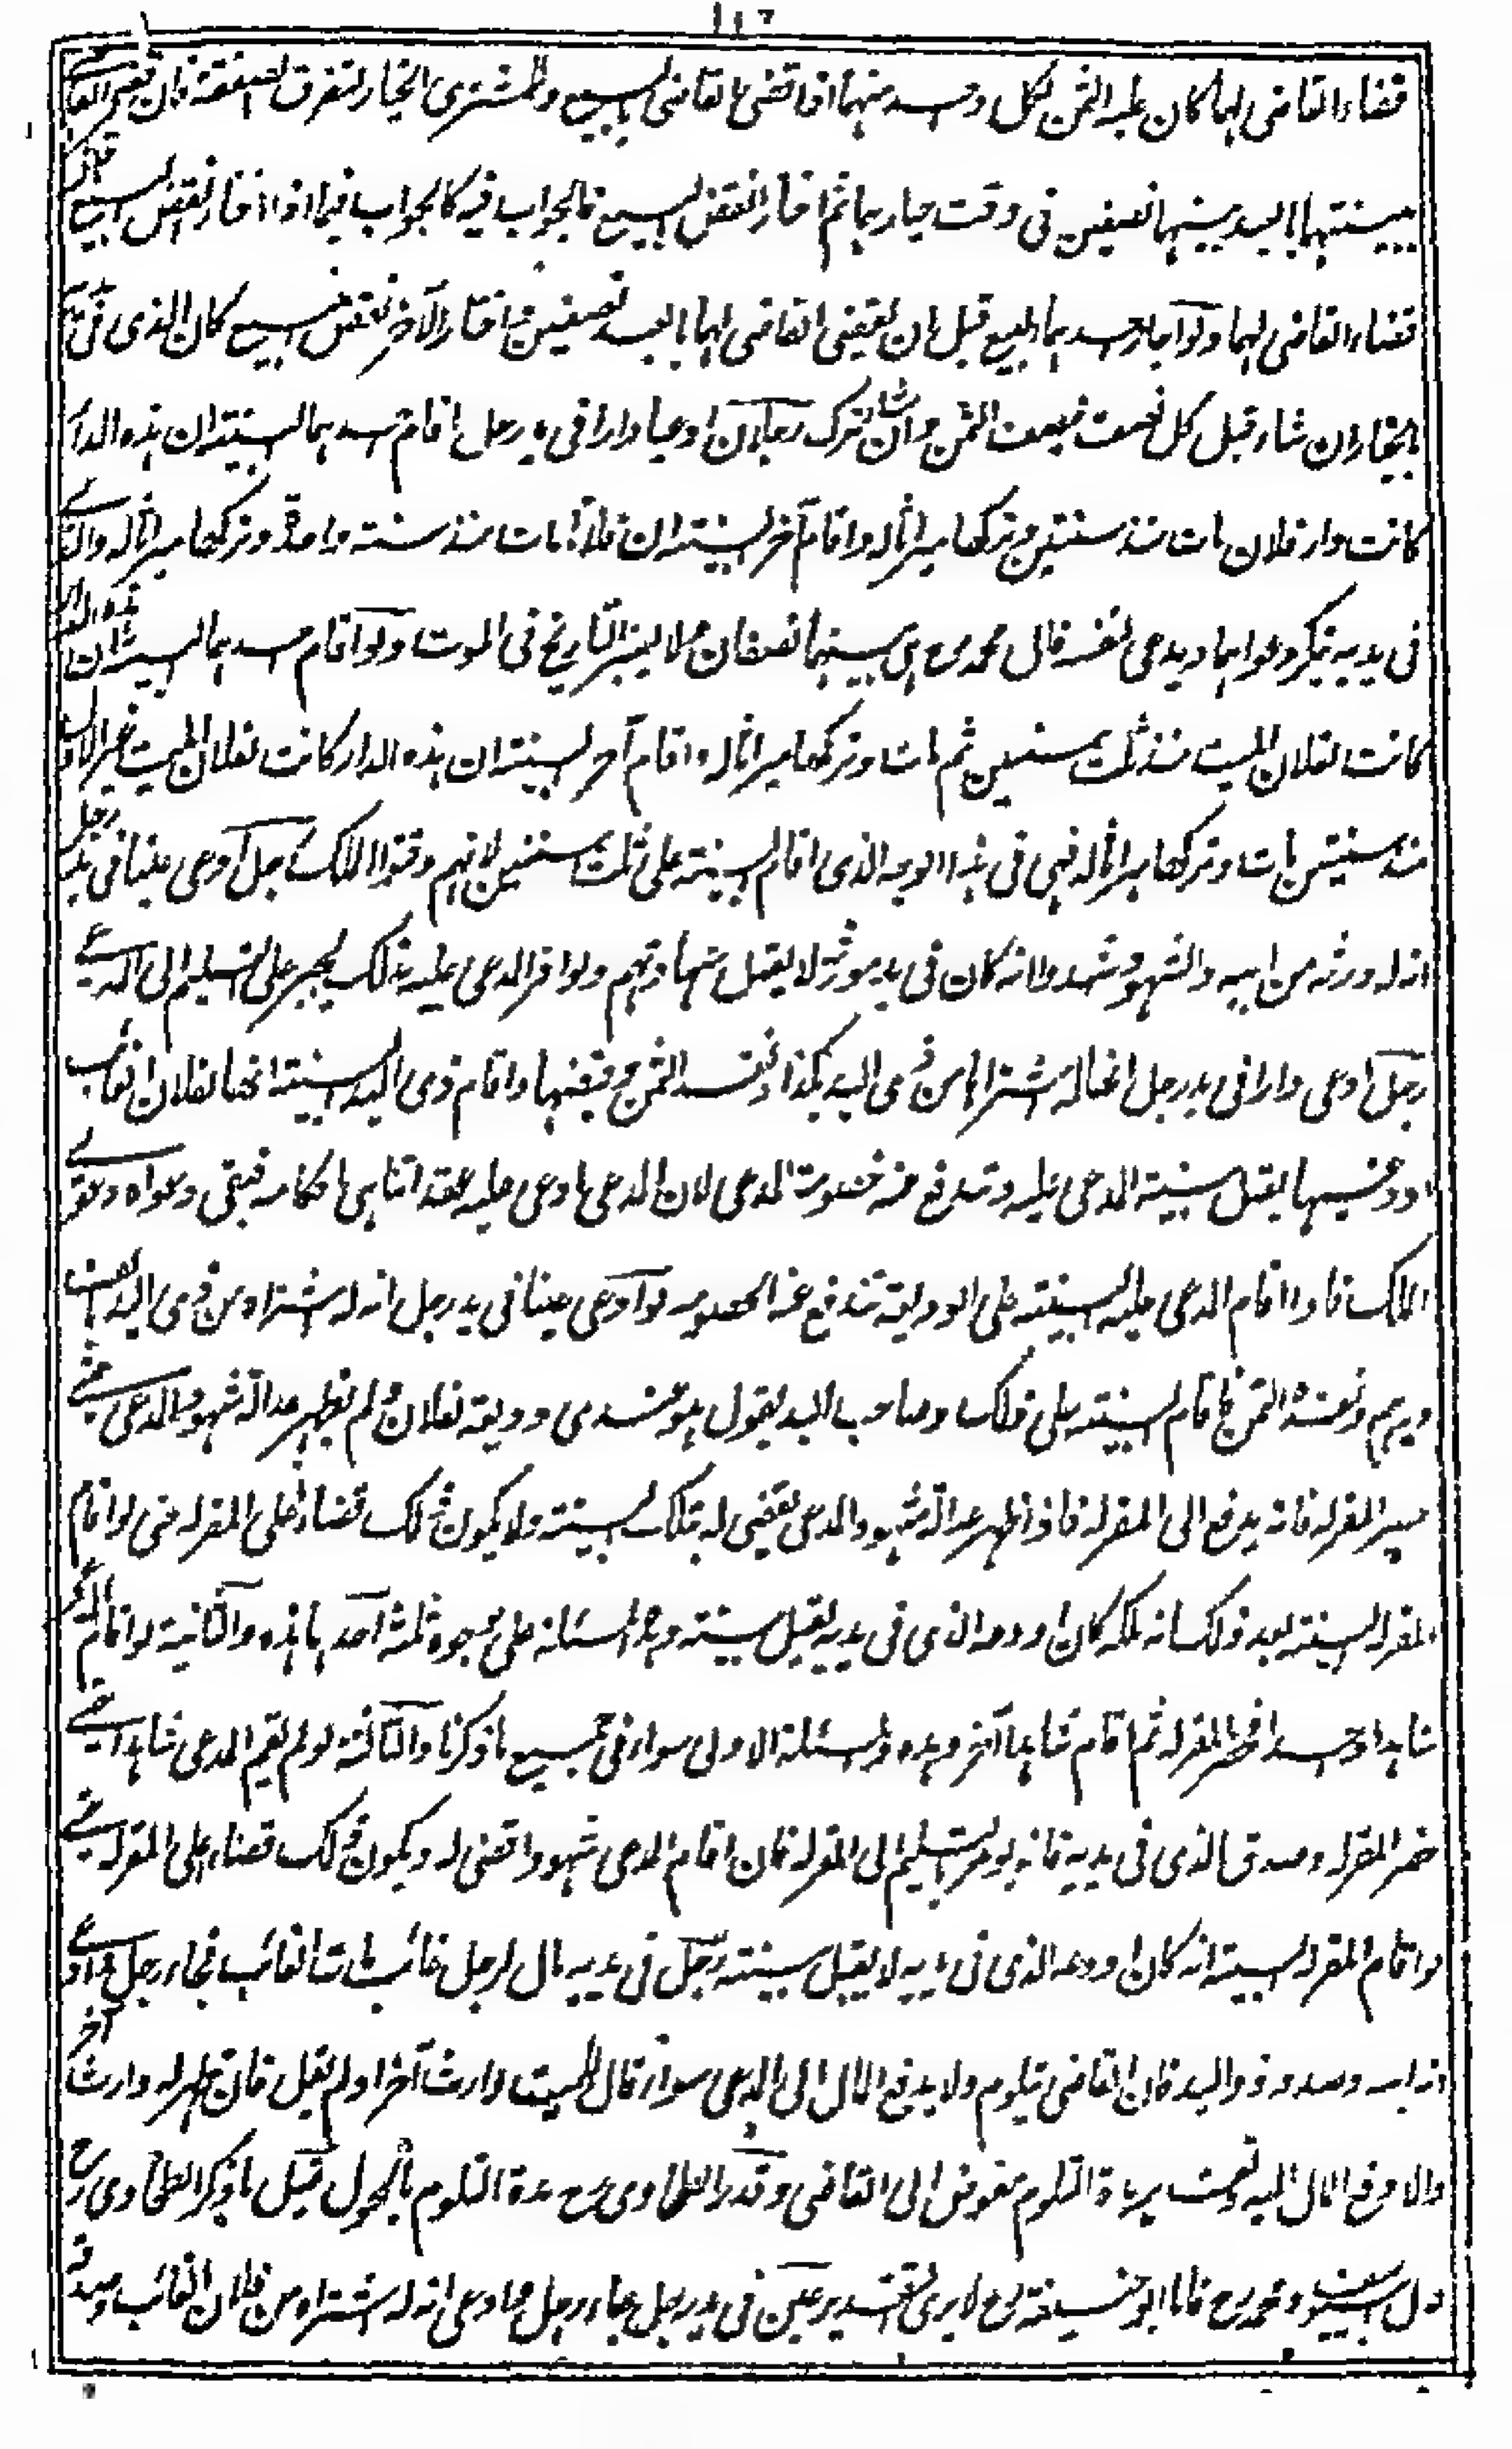 ١١٦
قضاء القاضى لهما كان عليه الثمن لكل واحد منهما اذا قضى القاضى بالبيع وللمشترى الخيار لتفرق الصفقة فان قضى القا
ببينتهما بالعبد بينهما نصفين فى وقت خيارهما ثم اختارا نقض البيع فالجواب فيه كالجواب فيما اذا اختارا نقض البيع قبل
قضاء القاضى لهما ولو اجاز احدهما البيع قبل ان يقضى القاضى لهما بالعبد نصفين ثم اختار الآخر نقض البيع كان الذى فى يده
بالخيار ان شاء قبل كل نصف بنصف الثمن وان شاء ترك رجلان ادعيا دارا فى يد رجل اقام احدهما البينة ان هذه الدار
كانت دار فلان مات منذ سنتين وتركها ميراثا له واقام آخر البينة ان فلانا مات منذ سنة واحدة وتركها ميراثا له والذى
فى يديه ينكر دعواهما ويدعى لنفسه قال محمد رح هى بينهما نصفان ولا يعتبر التاريخ فى الموت ولو اقام احدهما البينة ان هذه الدار
كانت لفلان الميت منذ ثلث سنين ثم مات وتركها ميراثا له واقام آخر البينة ان هذه الدار كانت لفلان الميت غير الاول
منذ سنتين مات وتركها ميراثا له فهى فى هذا الوجه الذى اقام البينة على ثلث سنين لانهم وقتوا الملك رجل ادعى عينا فى يد رجل
انه له ورثه من ابيه والشهود شهدوا انه كان فى يد مورثه لا يقبل شهادتهم ولو اقر المدعى عليه بذلك يجبر على التسليم الى المدعى
رجل ادعى دارا فى يد رجل انها له اشتراها من ذى اليد بكذا ونقد الثمن وقبضها واقام ذى اليد البينة انها لفلان الغائب
اودعنيها يقبل بينة المدعى عليه وتندفع عنه خصومة المدعى لان المدعى ادعى عليه عقدا تناهى احكامه فبقى دعواه دعوى
الملك فاذا اقام المدعى عليه البينة على الوديعة تندفع عنه الخصومة ولو ادعى عينا فى يد رجل انه له اشتراه من ذى اليد بالف
درهم ونقده الثمن فاقام البينة على ذلك وصاحب اليد يقول هو عندى وديعة لفلان ولم يظهر عدالة شهود المدعى حتى
حضر المقر له فانه يدفع الى المقر له فاذا ظهر عدالة شهود المدعى يقضى له بتلك البينة ولا يكون ذلك قضاء على المقر له حتى لو اقام
المقر له البينة بعد ذلك انه ملكه كان اودعه الذى فى يديه يقبل بينته وهذه المسئلة على وجوه ثلثة احدها هذه والثانية لو اقام المدعى
شاهدا واحدا فحضر المقر له ثم اقام شاهدا آخر وهذه والمسئلة الاولى سواء فى جميع ما ذكرنا والثالثة لو لم يقم المدعى شاهدا حتى
حضر المقر له وصدق الذى فى يديه فانه يؤمر بالتسليم الى المقر له فان اقام المدعى شهودا قضى له ويكون ذلك قضاء على المقر له حتى
لو اقام المقر له البينة انه كان اودعه الذى فى يديه لا يقبل بينته رجل فى يديه مال لرجل غائب مات الغائب فجاء رجل وادعى
انه ابنه وصدقه ذو اليد فان القاضى يتلوم ولا يدفع المال الى المدعى سواء قال للميت وارث آخر او لم يقل فان ظهر له وارث آخر
والا دفع المال اليه وقت مدة التلوم مفوض الى القاضى وقدر الطحاوى رح مدة التلوم بالحول قيل ما ذكر الطحاوى رح
قول ابى يوسف ومحمد رح فاما ابو حنيفة رح لا يرى التقدير عين فى يد رجل جاء رجل وادعى انه له اشتراه من فلان الغائب وصدقه